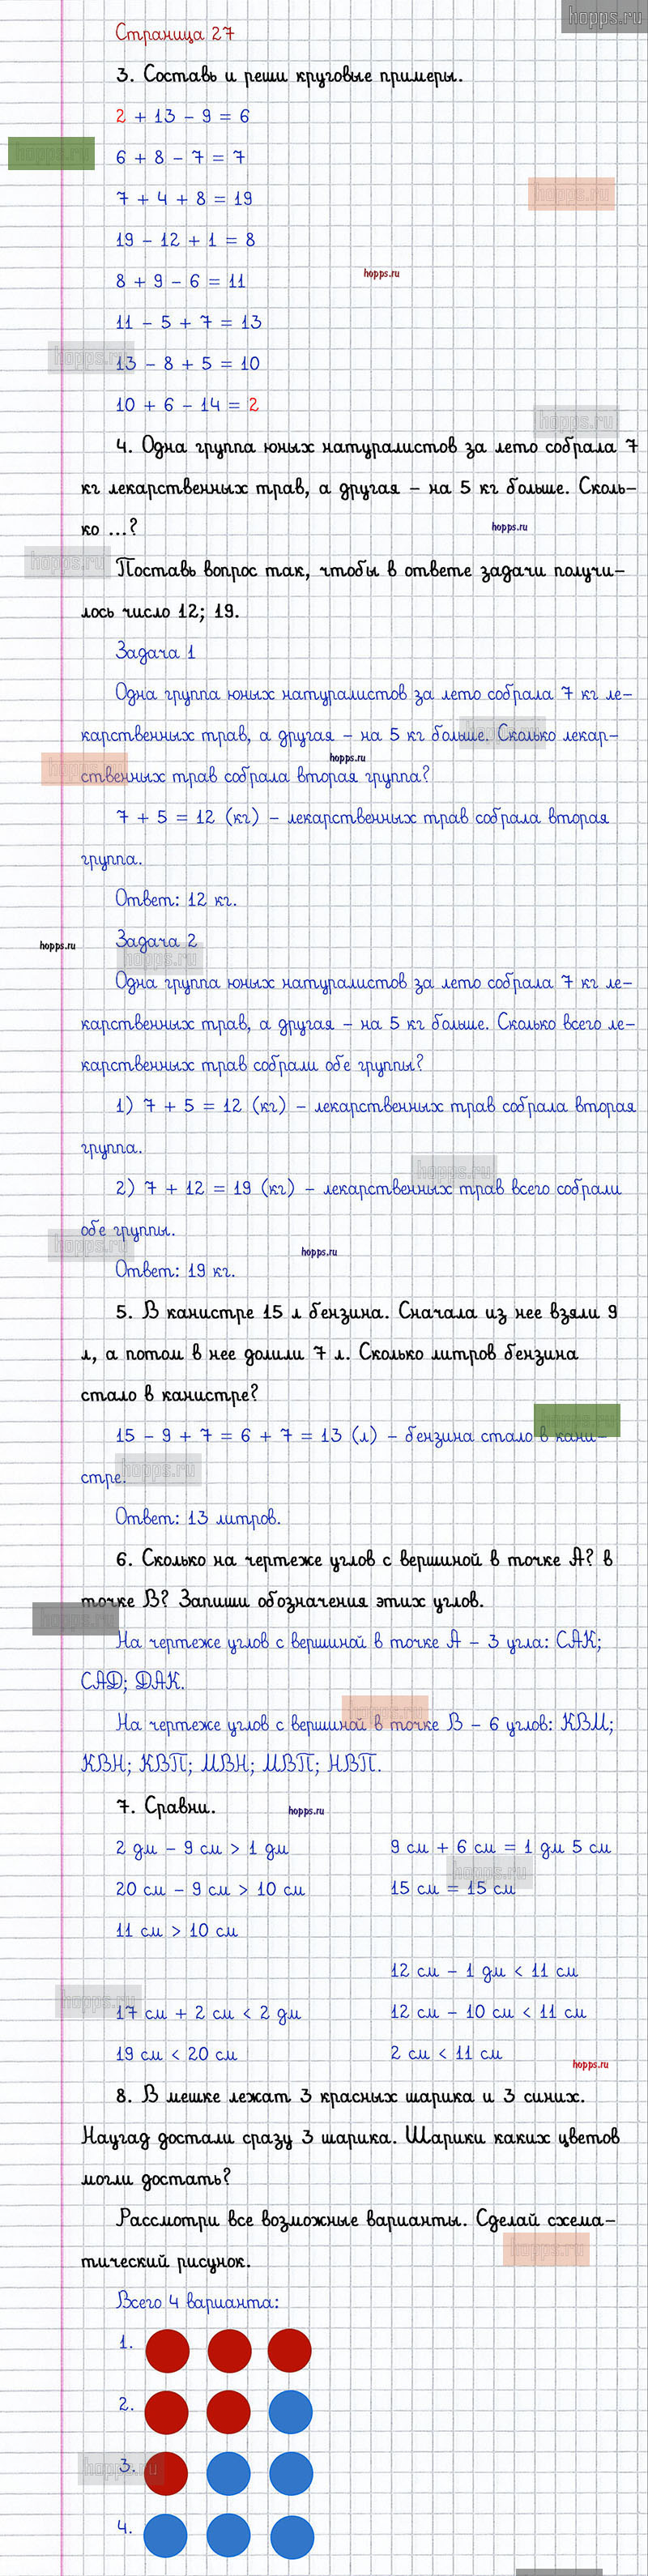 hopps.ru
Страница 27
3. Составь и реши круговые примеры.
2 + 13 – 9 = 6
hopps.ru
6 + 8 – 7 = 7
hopps.ru
7 + 4 + 8 = 19
19 – 12 + 1 = 8
hopps.ru
8 + 9 – 6 = 11
11 – 5 + 7 = 13
hopps.ru
13 – 8 + 5 = 10
10 + 6 – 14 = 2
hopps.ru
4. Одна группа юных натуралистов за лето собрала 7
кг лекарственных трав, а другая – на 5 кг больше. Сколь–
ко ...?
hopps.ru
hopps.ru
Поставь вопрос так, чтобы в ответе задачи получи–
лось число 12; 19.
Задача 1
Одна группа юных натуралистов за лето собрала 7 кг ле–
карственных трав, а другая – на 5 кг больше. Сколько лекар–
hopps.ru
hopps.ru
hopps.ru
ственных трав собрала вторая группа?
7 + 5 = 12 (кг) – лекарственных трав собрала вторая
группа.
Ответ: 12 кг.
hopps.ru
Задача 2
hopps.ru
Одна группа юных натуралистов за лето собрала 7 кг ле–
карственных трав, а другая – на 5 кг больше. Сколько всего ле–
карственных трав собрали обе группы?
1) 7 + 5 = 12 (кг) – лекарственных трав собрала вторая
группа.
hopps.ru
2) 7 + 12 = 19 (кг) – лекарственных трав всего собрали
обе группы.
hopps.ru
hopps.ru
Ответ: 19 кг.
5. В канистре 15 л бензина. Сначала из нее взяли 9
л, а потом в нее долили 7 л. Сколько литров бензина
стало в канистре?
15 – 9 + 7 = 6 + 7 = 13 (л) – бензина стало в кани–
стре.
hopps.ru
Ответ: 13 литров.
6. Сколько на чертеже углов с вершиной в точке А? в
точке В? Запиши обозначения этих углов.
hopps.ru
На чертеже углов с вершиной в точке А – 3 угла: САК;
САД; ДАК.
hopps.ru
На чертеже углов с вершиной в точке В – 6 углов: КВМ;
КВН; КВП; МВН; МВП; НВП.
7. Сравни.
hopps.ru
2 дм – 9 см > 1 дм
9 см + 6 см = 1 дм 5 см
hopps.ru
20 см – 9 см > 10 см
15 см = 15 см
11 см > 10 см
12 см – 1 дм < 11 см
hopps.ru
17 см + 2 см < 2 дм
12 см – 10 см < 11 см
19 см < 20 см
2 см < 11 см
hopps.ru
8. В мешке лежат 3 красных шарика и 3 синих.
Наугад достали сразу 3 шарика. Шарики каких цветов
могли достать?
Рассмотри все возможные варианты. Сделай схема–
тический рисунок.
hopps.ru
Всего 4 варианта:
1.
2.
3.
hopps.ru
4.